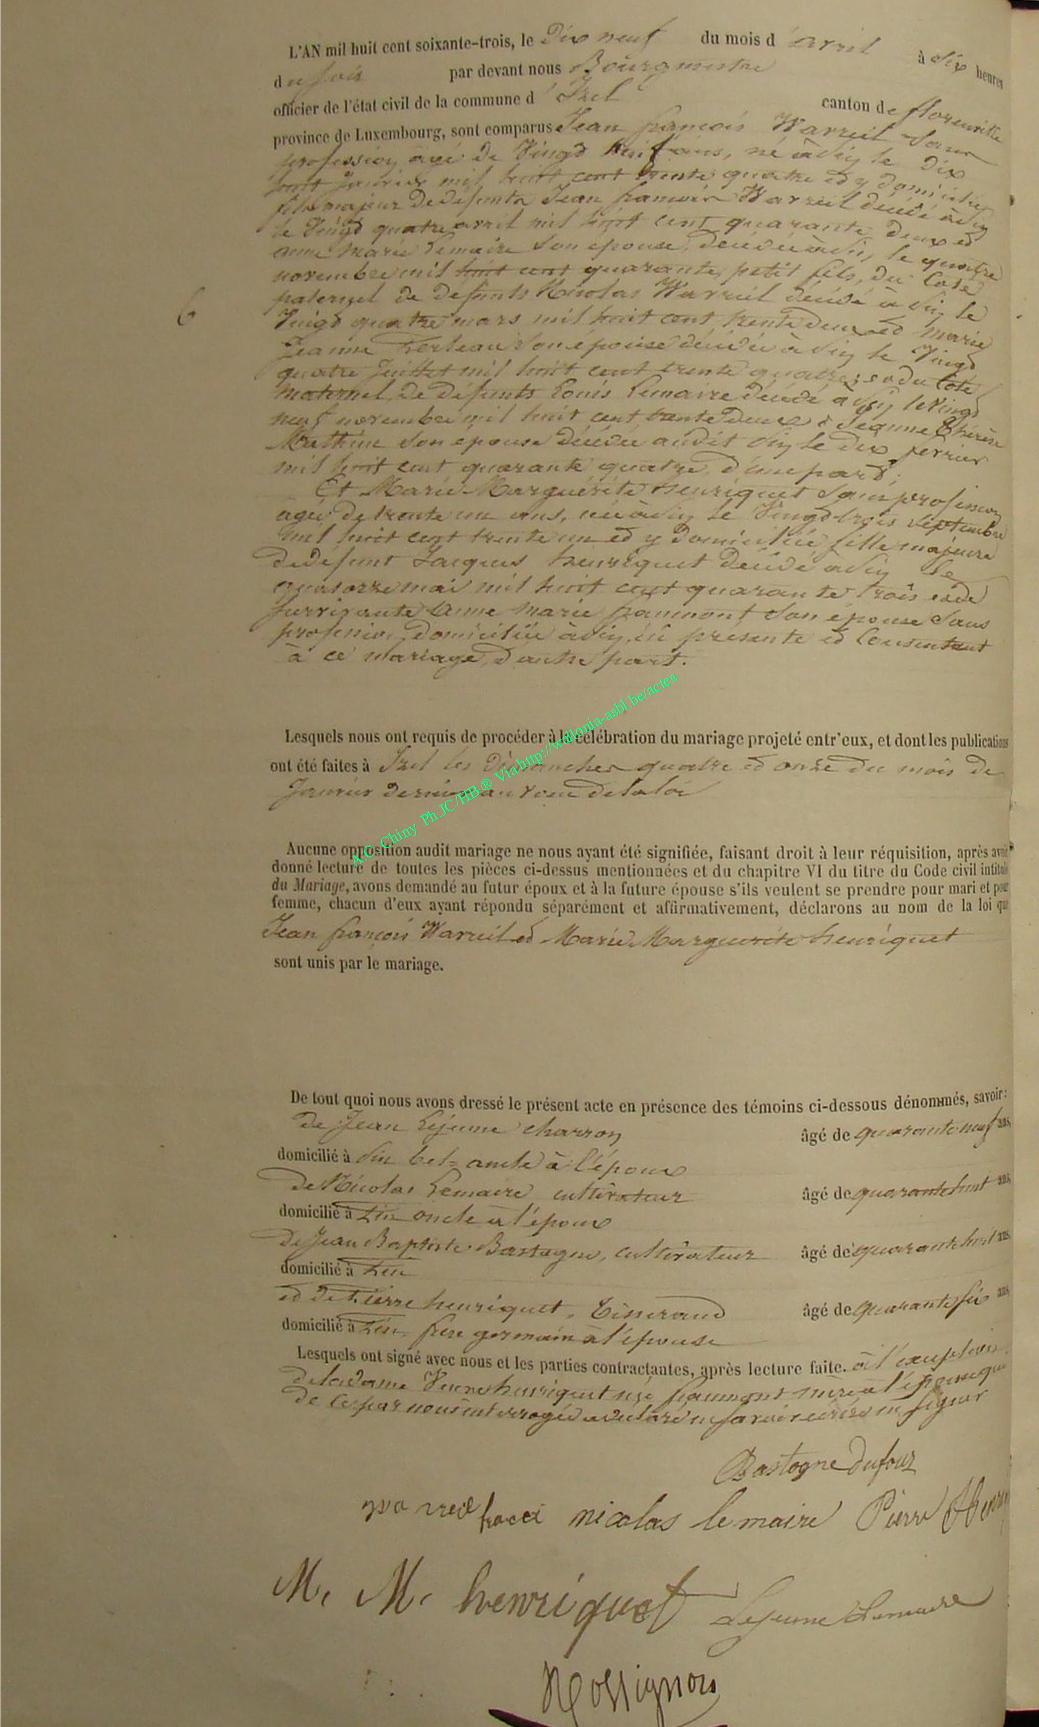 L'AN mil huit cent soixante-trois, le Dix neuf du mois d'avril à Six heures
du soir par devant nous Bourgmestre
officier de l'état civil de la commune d'Izel canton de florenville
province de Luxembourg, sont comparus Jean françois Warreit sans
profession âgé de Vingd neuf ans, né à Pin le Dix
huit Janvier mil huit cent trente quatre ed y domicilié
fils majeur de defunts Jean françois Warreit décédé à Pin
le Vingd quatre avril mil huit cent quarante deux ed
anne Marie Lemaire son epouse, décédée à Pin, le quatre
novembre mil huit cent quarante, petit fils, du Coté
paternel de defunts Nicolas Warreit décédé à Pin le
Vingd quatre mars mil huit cent trente deux ed Marie
Jeanne son épouse décédée à Pin le Vingd
quatre Juillet mil huit cent trente quatre; ed du Coté
maternel, de défunts Louis Lemaire décédé à Pin le Vingd
neuf novembre mil huit cent trente deux & Jeanne Thérèse
Mathieu son epouse décédée audit Pin le dix fevrier
mil huit cent quarante quatre, d'une part;
Et Marie Marguérite henriquet sans profession
agée de trente un ans, née à Pin le Vingd trois septembre
mil huit cent trente un ed y domiciliée fille majeure
de défunt Jacques henriquet décédé à Pin le
quatorze mai mil huit cent quarante trois ed de
survivante Anne Marie paumont son épouse sans
profession, domiciliée à Pin, ici présente ed Consentant
à ce mariage, d'autre part.
Lesquels nous ont requis de procéder à la célébration du mariage projeté entr'eux, et dont les publications
ont été faites à Izel les Dimanches quatre ed onze du mois de
Janvier dernier au voeu de la loi
A.C. Chiny Ph.JC/HB® Via http://wallonia-asbl.be/actes
Aucune opposition audit mariage ne nous ayant été signifiée, faisant droit à leur réquisition, après avoir
donné lecture de toutes les pièces ci-dessus mentionnées et du chapitre VI du titre du Code civil intitulé
du Mariage, avons demandé au futur époux et à la future épouse s'ils veulent se prendre pour mari et pour
femme, chacun d'eux ayant répondu séparément et affirmativement, déclarons au nom de la loi que
Jean françois Warreit ed Marie Marguerite henriquet
sont unis par le mariage.
De tout quoi nous avons dressé le présent acte en présence des témoins ci-dessous dénommés, savoir:
de Jean Lejeune charron âgé de quarante neuf ans,
domicilié à Pin bel-oncle à l'époux
de Nicolas Lemaire cultivateur âgé de quarante huit ans,
domicilié à Pin oncle à l'époux
de Jean Baptiste Bastogne, cultivateur âgé de quarante huit ans,
domicilié à Pin
ed de Pierre henriquet, Tisserand âgé de quarante six ans
domicilié à Pin frère germain à l'épouse
Lesquels ont signé avec nous et les parties contractantes, après lecture faite. à l'exception
de la dame Veuve henriquet née paumont mère à l'épouse qui
de ce par nous interrogée a declaré ne savoir écrire ni signer
Bastogne Dufour
nicolas lemaire Pierre
M. M. henriquet Lejeune Lemaire
Rossignon
6